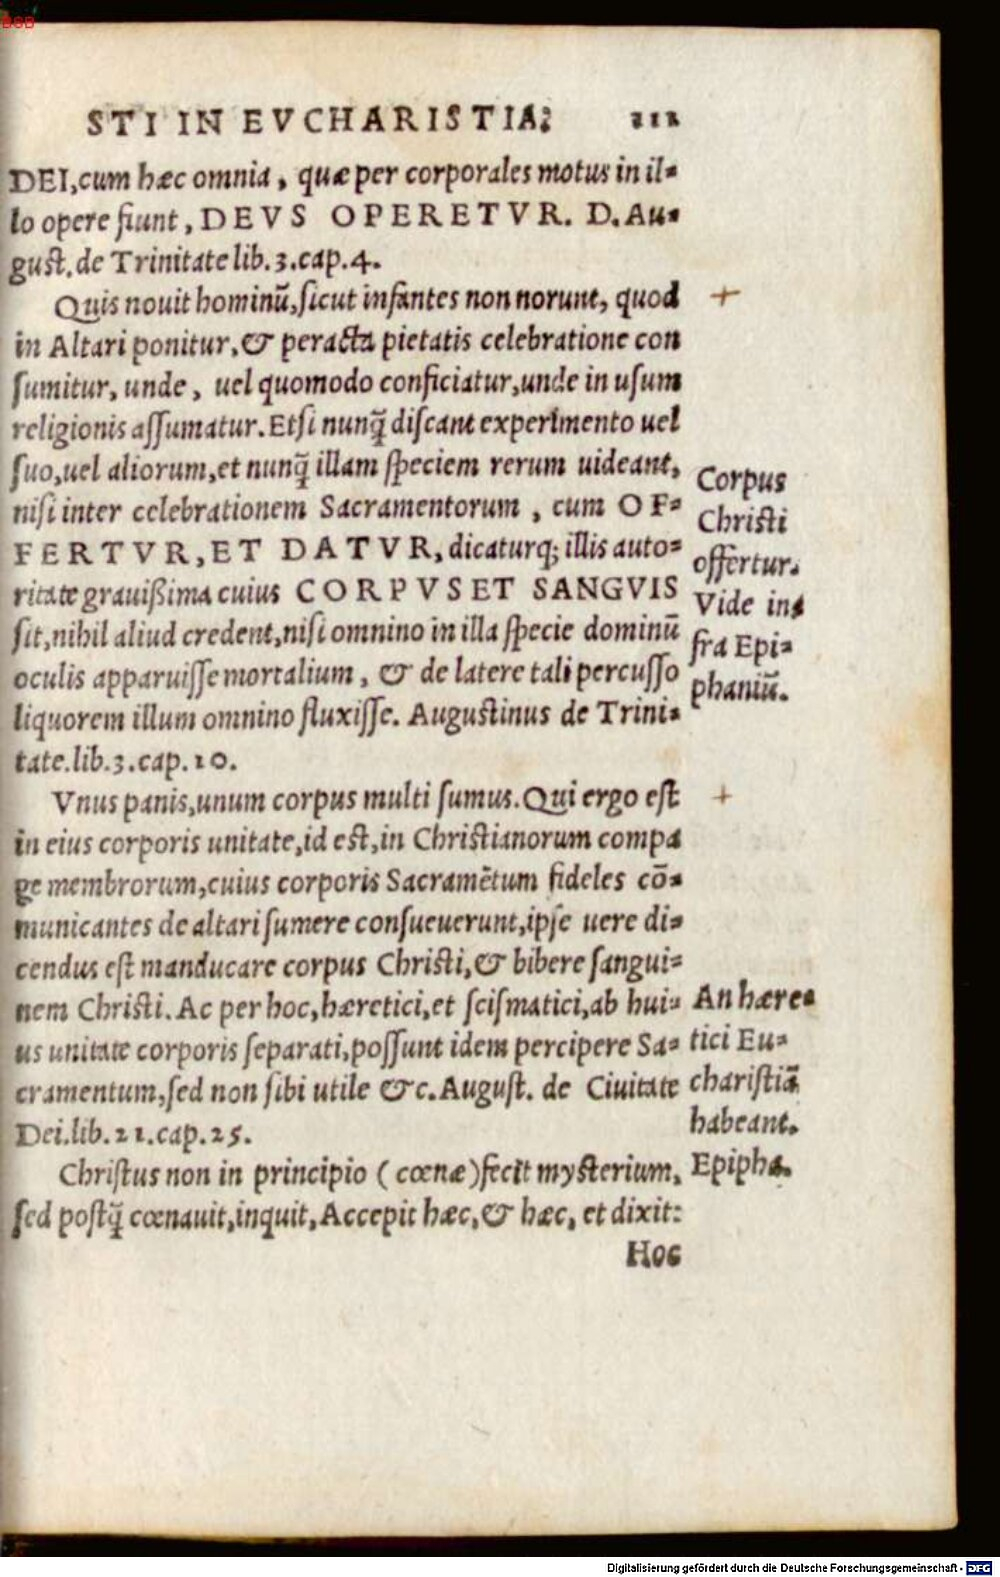 STI IN EVCHARISTIA: 111
DEI, cum hæc omnia, quæ per corporales motus in il-
lo opere fiunt, DEVS OPERETVR. D. Au-
gust. de Trinitate lib. 3. cap. 4.
Quis nouit hominū, sicut infantes non norunt, quod
in Altari ponitur, & peracta pietatis celebratione con
sumitur, unde, uel quomodo conficiatur, unde in usum
religionis assumatur. Etsi nunq̃ discant experimento uel
suo, uel aliorum, et nunq̃ illam speciem rerum uideant,
nisi inter celebrationem Sacramentorum, cum OF-
FERTVR, ET DATVR, dicaturq; illis auto-
ritate grauißima cuius CORPVS ET SANGVIS
sit, nihil aliud credent, nisi omnino in illa specie dominū
oculis apparuisse mortalium, & de latere tali percusso
liquorem illum omnino fluxisse. Augustinus de Trini-
tate. lib. 3. cap. 10.
Corpus
Christi
offertur.
Vide in-
fra Epi-
phaniū.
Vnus panis, unum corpus multi sumus. Qui ergo est
in eius corporis unitate, id est, in Christianorum compa
ge membrorum, cuius corporis Sacramētum fideles cō-
municantes de altari sumere consueuerunt, ipse uere di-
cendus est manducare corpus Christi, & bibere sangui-
nem Christi. Ac per hoc, hæretici, et scismatici, ab hui-
us unitate corporis separati, possunt idem percipere Sa-
cramentum, sed non sibi utile &c. August. de Ciuitate
Dei. lib. 21. cap. 25.
An hære-
tici Eu-
charistiā
habeant.
Epipha.
Christus non in principio (cœnæ) fecit mysterium,
sed postq̃ cœnauit, inquit, Accepit hæc, & hæc, et dixit:
Hoc
BSB
Digitalisierung gefördert durch die Deutsche Forschungsgemeinschaft - DFG